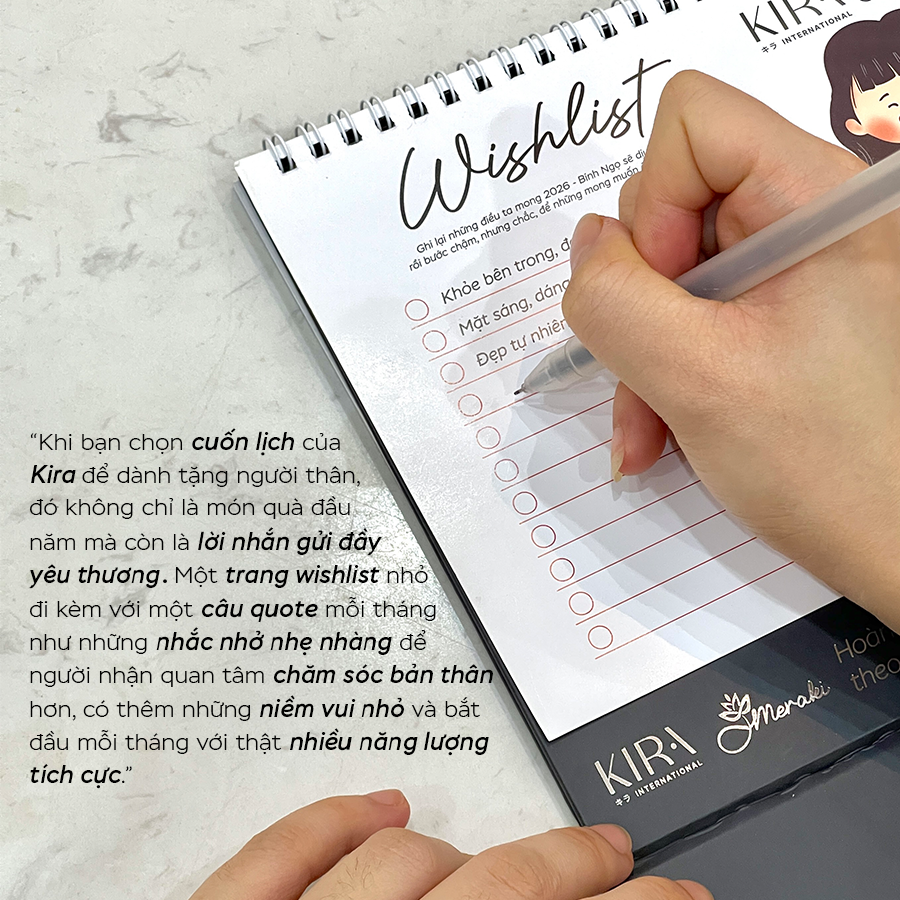 KIRA
キラ INTERNATIONAL
Wishlist
Ghi lại những điều ta mong 2026 - Bính Ngọ sẽ
rồi bước chậm, nhưng chắc, để những mong muốn
Khỏe bên trong,
Mặt sáng, dáng
Đẹp tự nhiên
“Khi bạn chọn cuốn lịch của
Kira để dành tặng người thân,
đó không chỉ là món quà đầu
năm mà còn là lời nhắn gửi đầy
yêu thương. Một trang wishlist nhỏ
đi kèm với một câu quote mỗi tháng
như những nhắc nhở nhẹ nhàng để
người nhận quan tâm chăm sóc bản thân
hơn, có thêm những niềm vui nhỏ và bắt
đầu mỗi tháng với thật nhiều năng lượng
tích cực.”
KIRA
キラ INTERNATIONAL
Meraki
theo